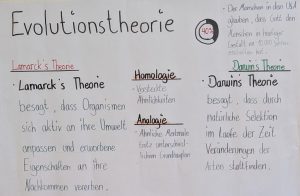 Evolutionstheorie
40%
Der Menschen in den USA
glauben, dass Gott den
Menschen in heutiger
Gestalt vor 10.000 Jahren
erschaffen hat.
Lamarck's Theorie
• Lamarck's Theorie
besagt, dass Organismen
sich aktiv an ihre Umwelt
anpassen und erworbene
Eigenschaften an ihre
Nachkommen vererben.
Homologie
Versteckte
Ähnlichkeiten
Analogie
Ähnliche Merkmale
trotz unterschied-
lichem Grundbauplan
Darwins Theorie
• Darwins Theorie
besagt, dass durch
natürliche Selektion
im Laufe der Zeit
Veränderungen der
Arten stattfinden.